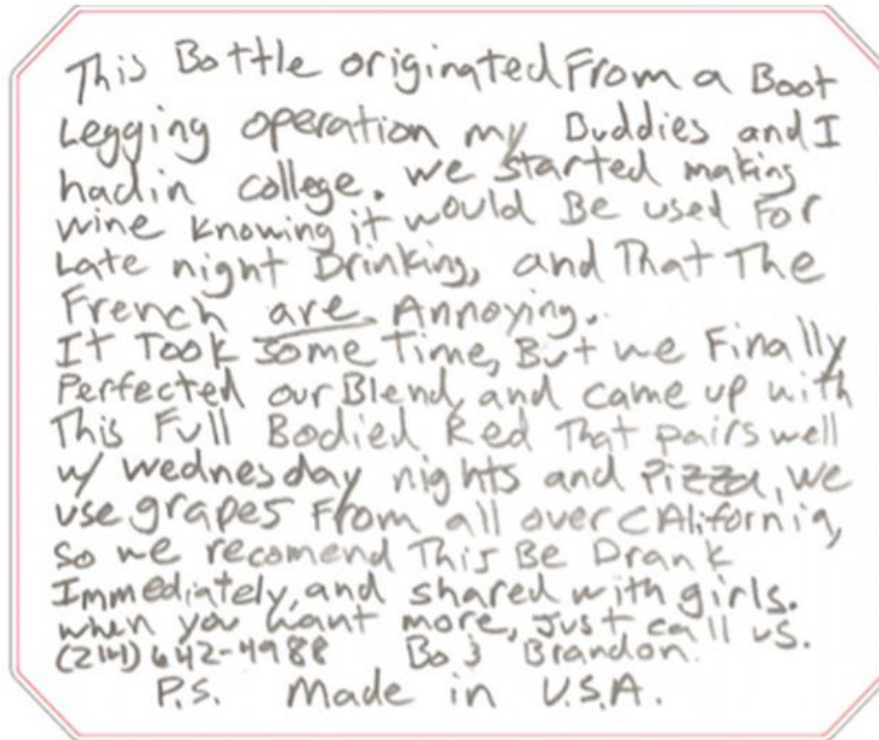 This Bottle originated From a Boot
Legging operation my Buddies and I
had in college. we started making
wine knowing it would Be used For
Late night Drinking, and That The
French are Annoying.
It Took some Time, But we Finally
Perfected our Blend, and came up with
This Full Bodied Red That pairs well
w/ wednesday nights and Pizza, we
use grapes From all over CAlifornia,
so we recomend This Be Drank
Immediately, and shared with girls.
when you want more, Just call us.
(214) 642-4988 Bo & Brandon.
P.S. Made in U.S.A.